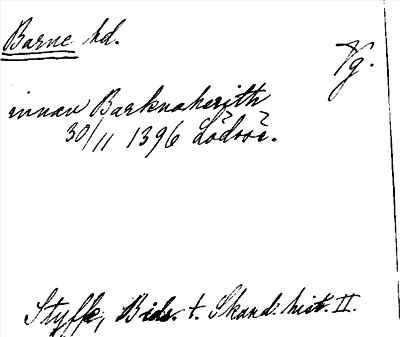 Barne hd.
Vg.
innan Barknahærith
30/11 1396 Lödose.
Styffe, Bidr. t. Skand. hist. II.